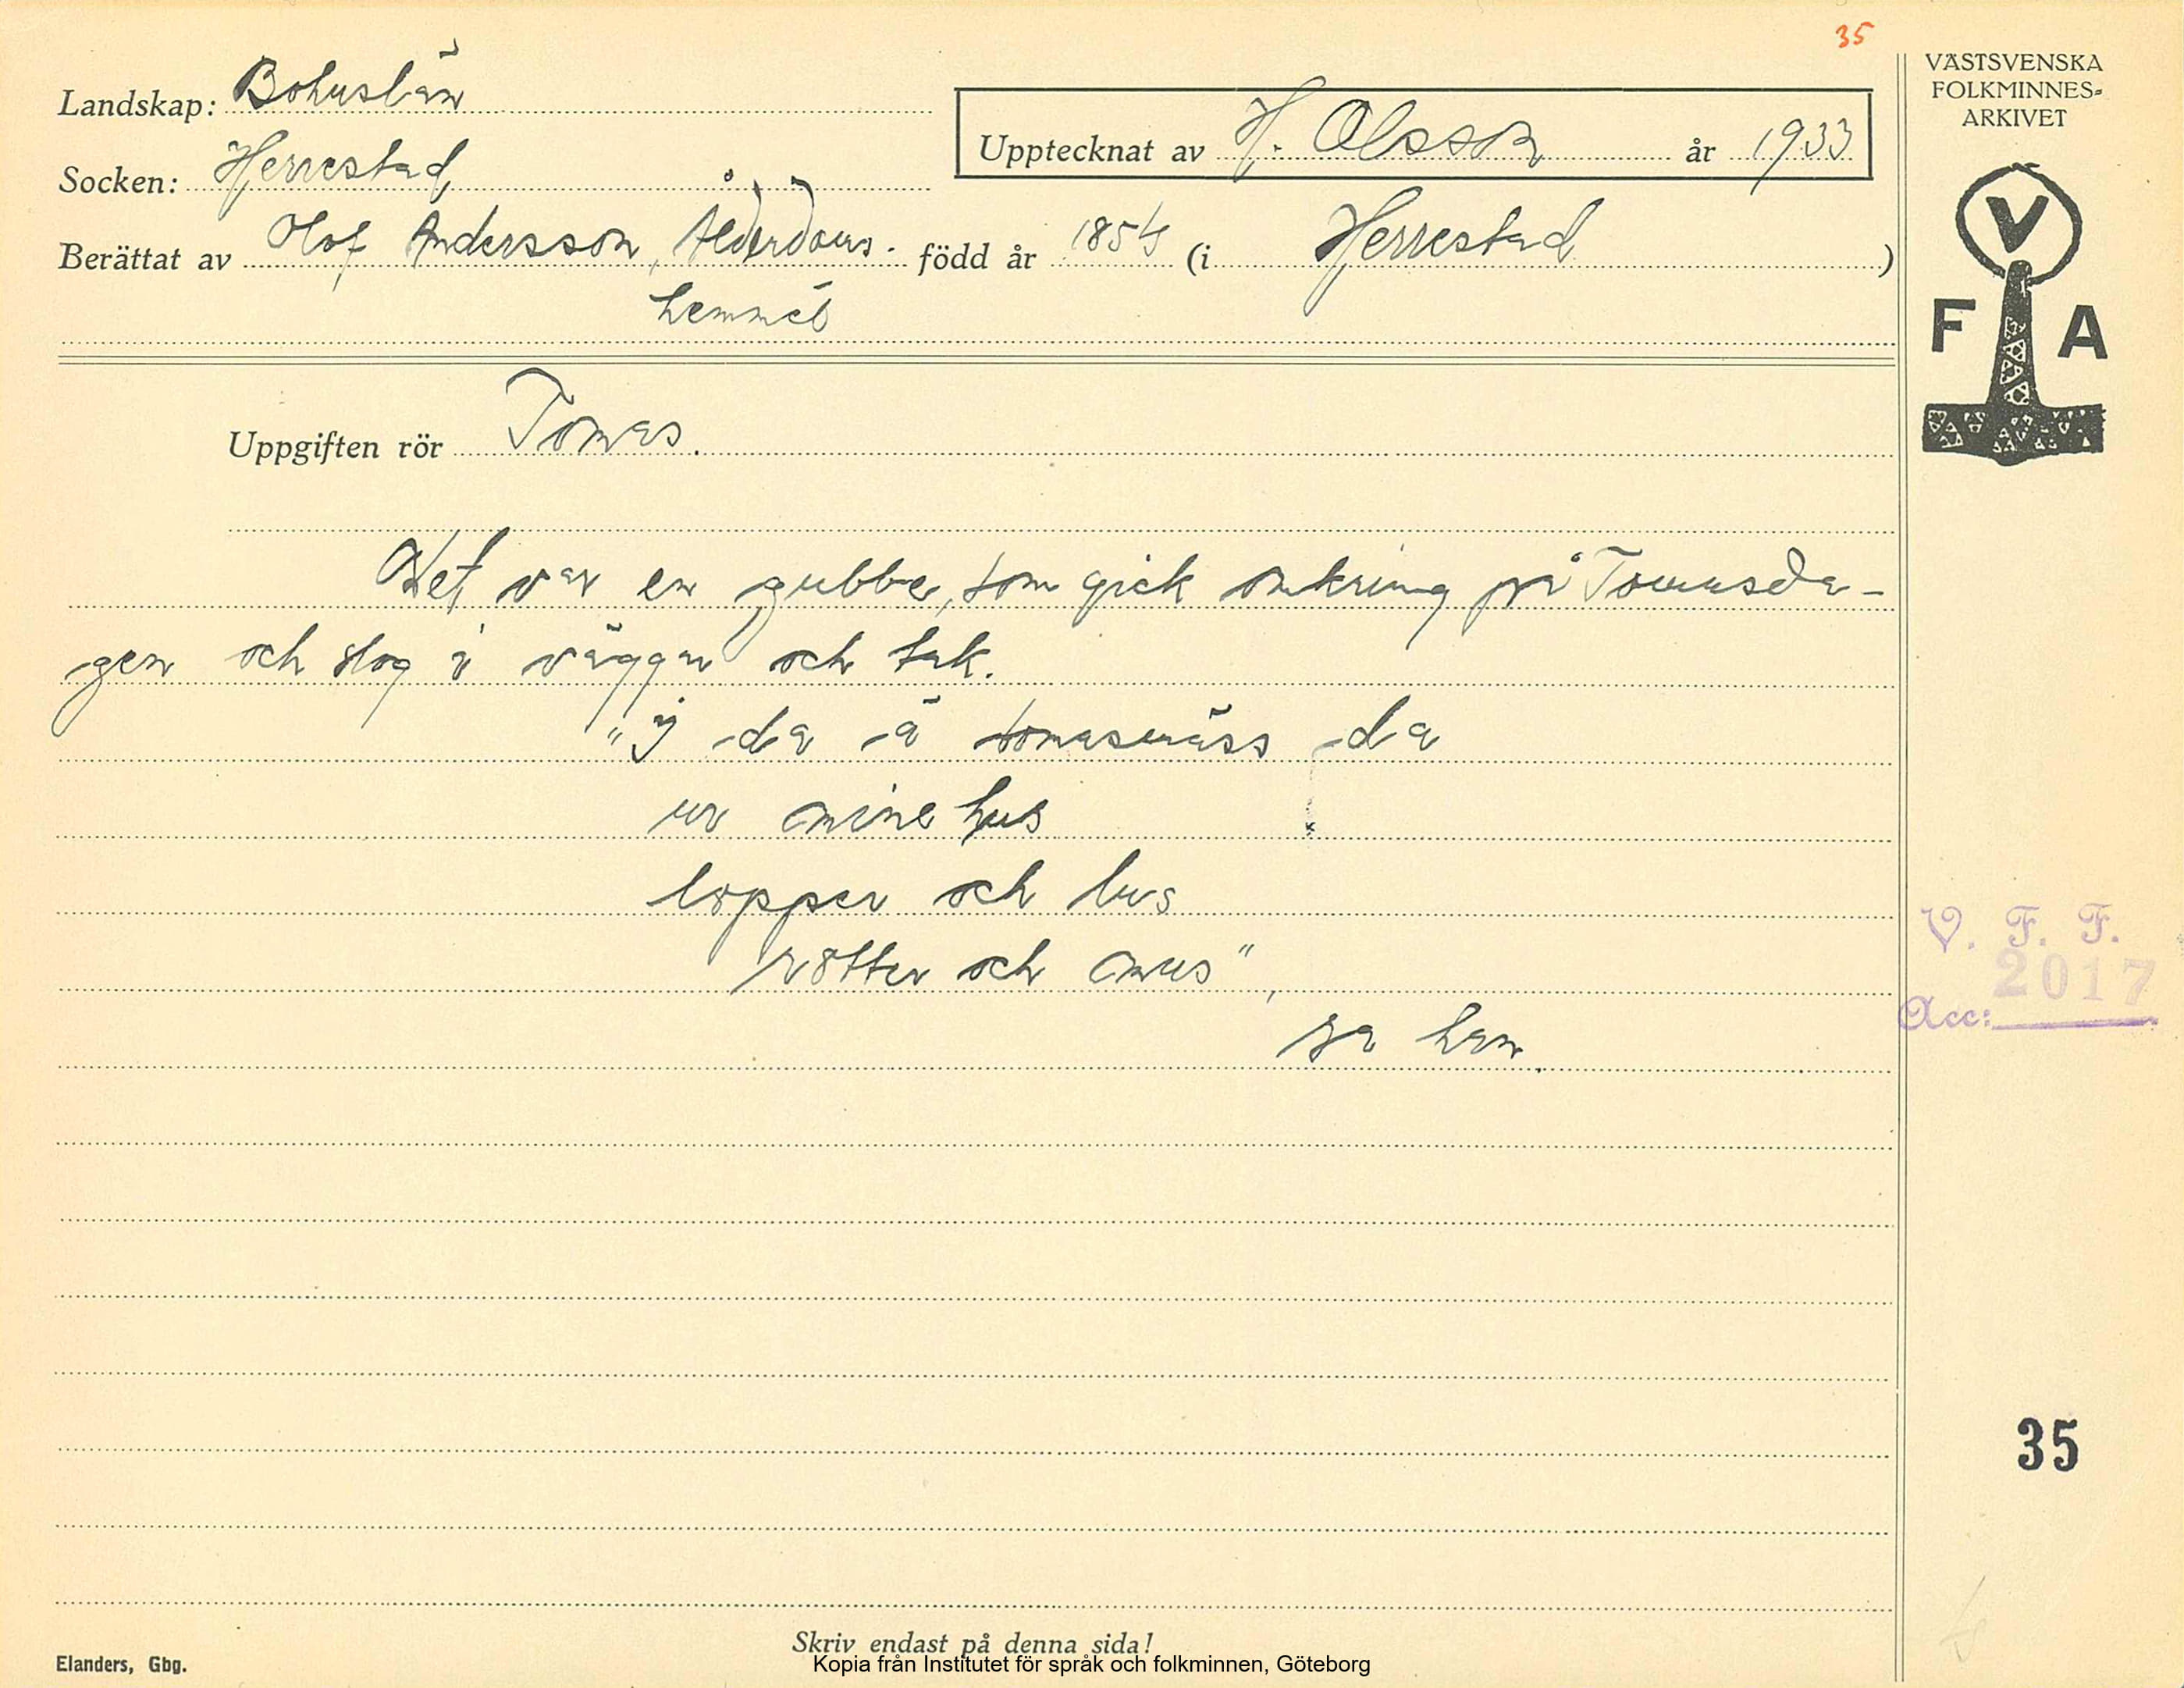 35
VÄSTSVENSKA
FOLKMINNES-
ARKIVET
Landskap: Bohuslän
Upptecknat av H. Olsson år 1933
Socken: Herrestad
Berättat av Olof Andersson, Ålderdoms- född år 1854 (i Herrestad)
hemmet
V
F A
Uppgiften rör Tomas.
Det var en gubbe, som gick omkring på Tomasda-
gen och slog i väggar och tak.
"I da ä tomasmäss da
ur mine hus
lopper och lus
rötter och mus",
sa han.
V. F. F.
2017
Acc:
35
Skriv endast på denna sida!
Elanders, Gbg.
Kopia från Institutet för språk och folkminnen, Göteborg